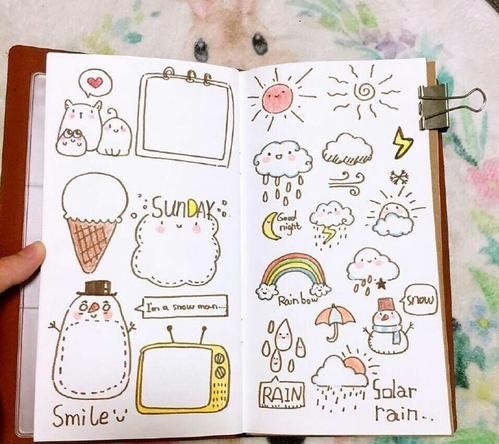 SUNDAY
I'm a snow man...
Smile
Good
night
Rainbow
snow
RAIN
Solar
rain..